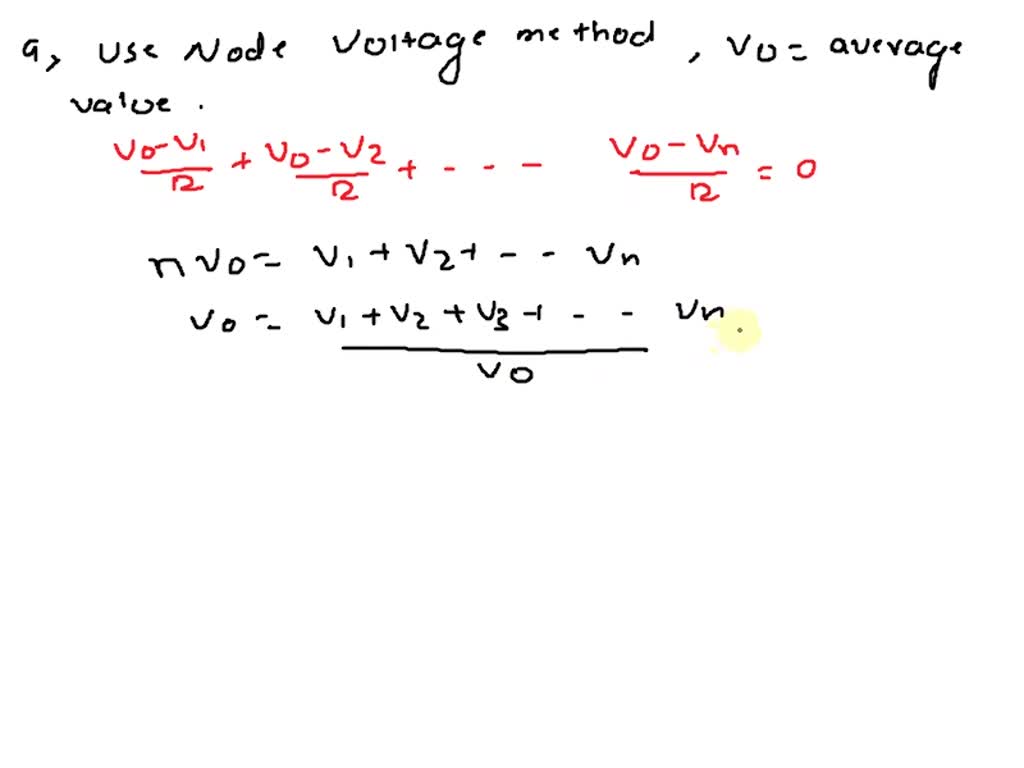 a, use Node Voltage method, v0 = average
value.
v0-v1/R + v0-v2/R + - - - v0-vn/R = 0
n v0 = v1 + v2 + - - vn
v0 = v1 + v2 + v3 + - - vn
v0